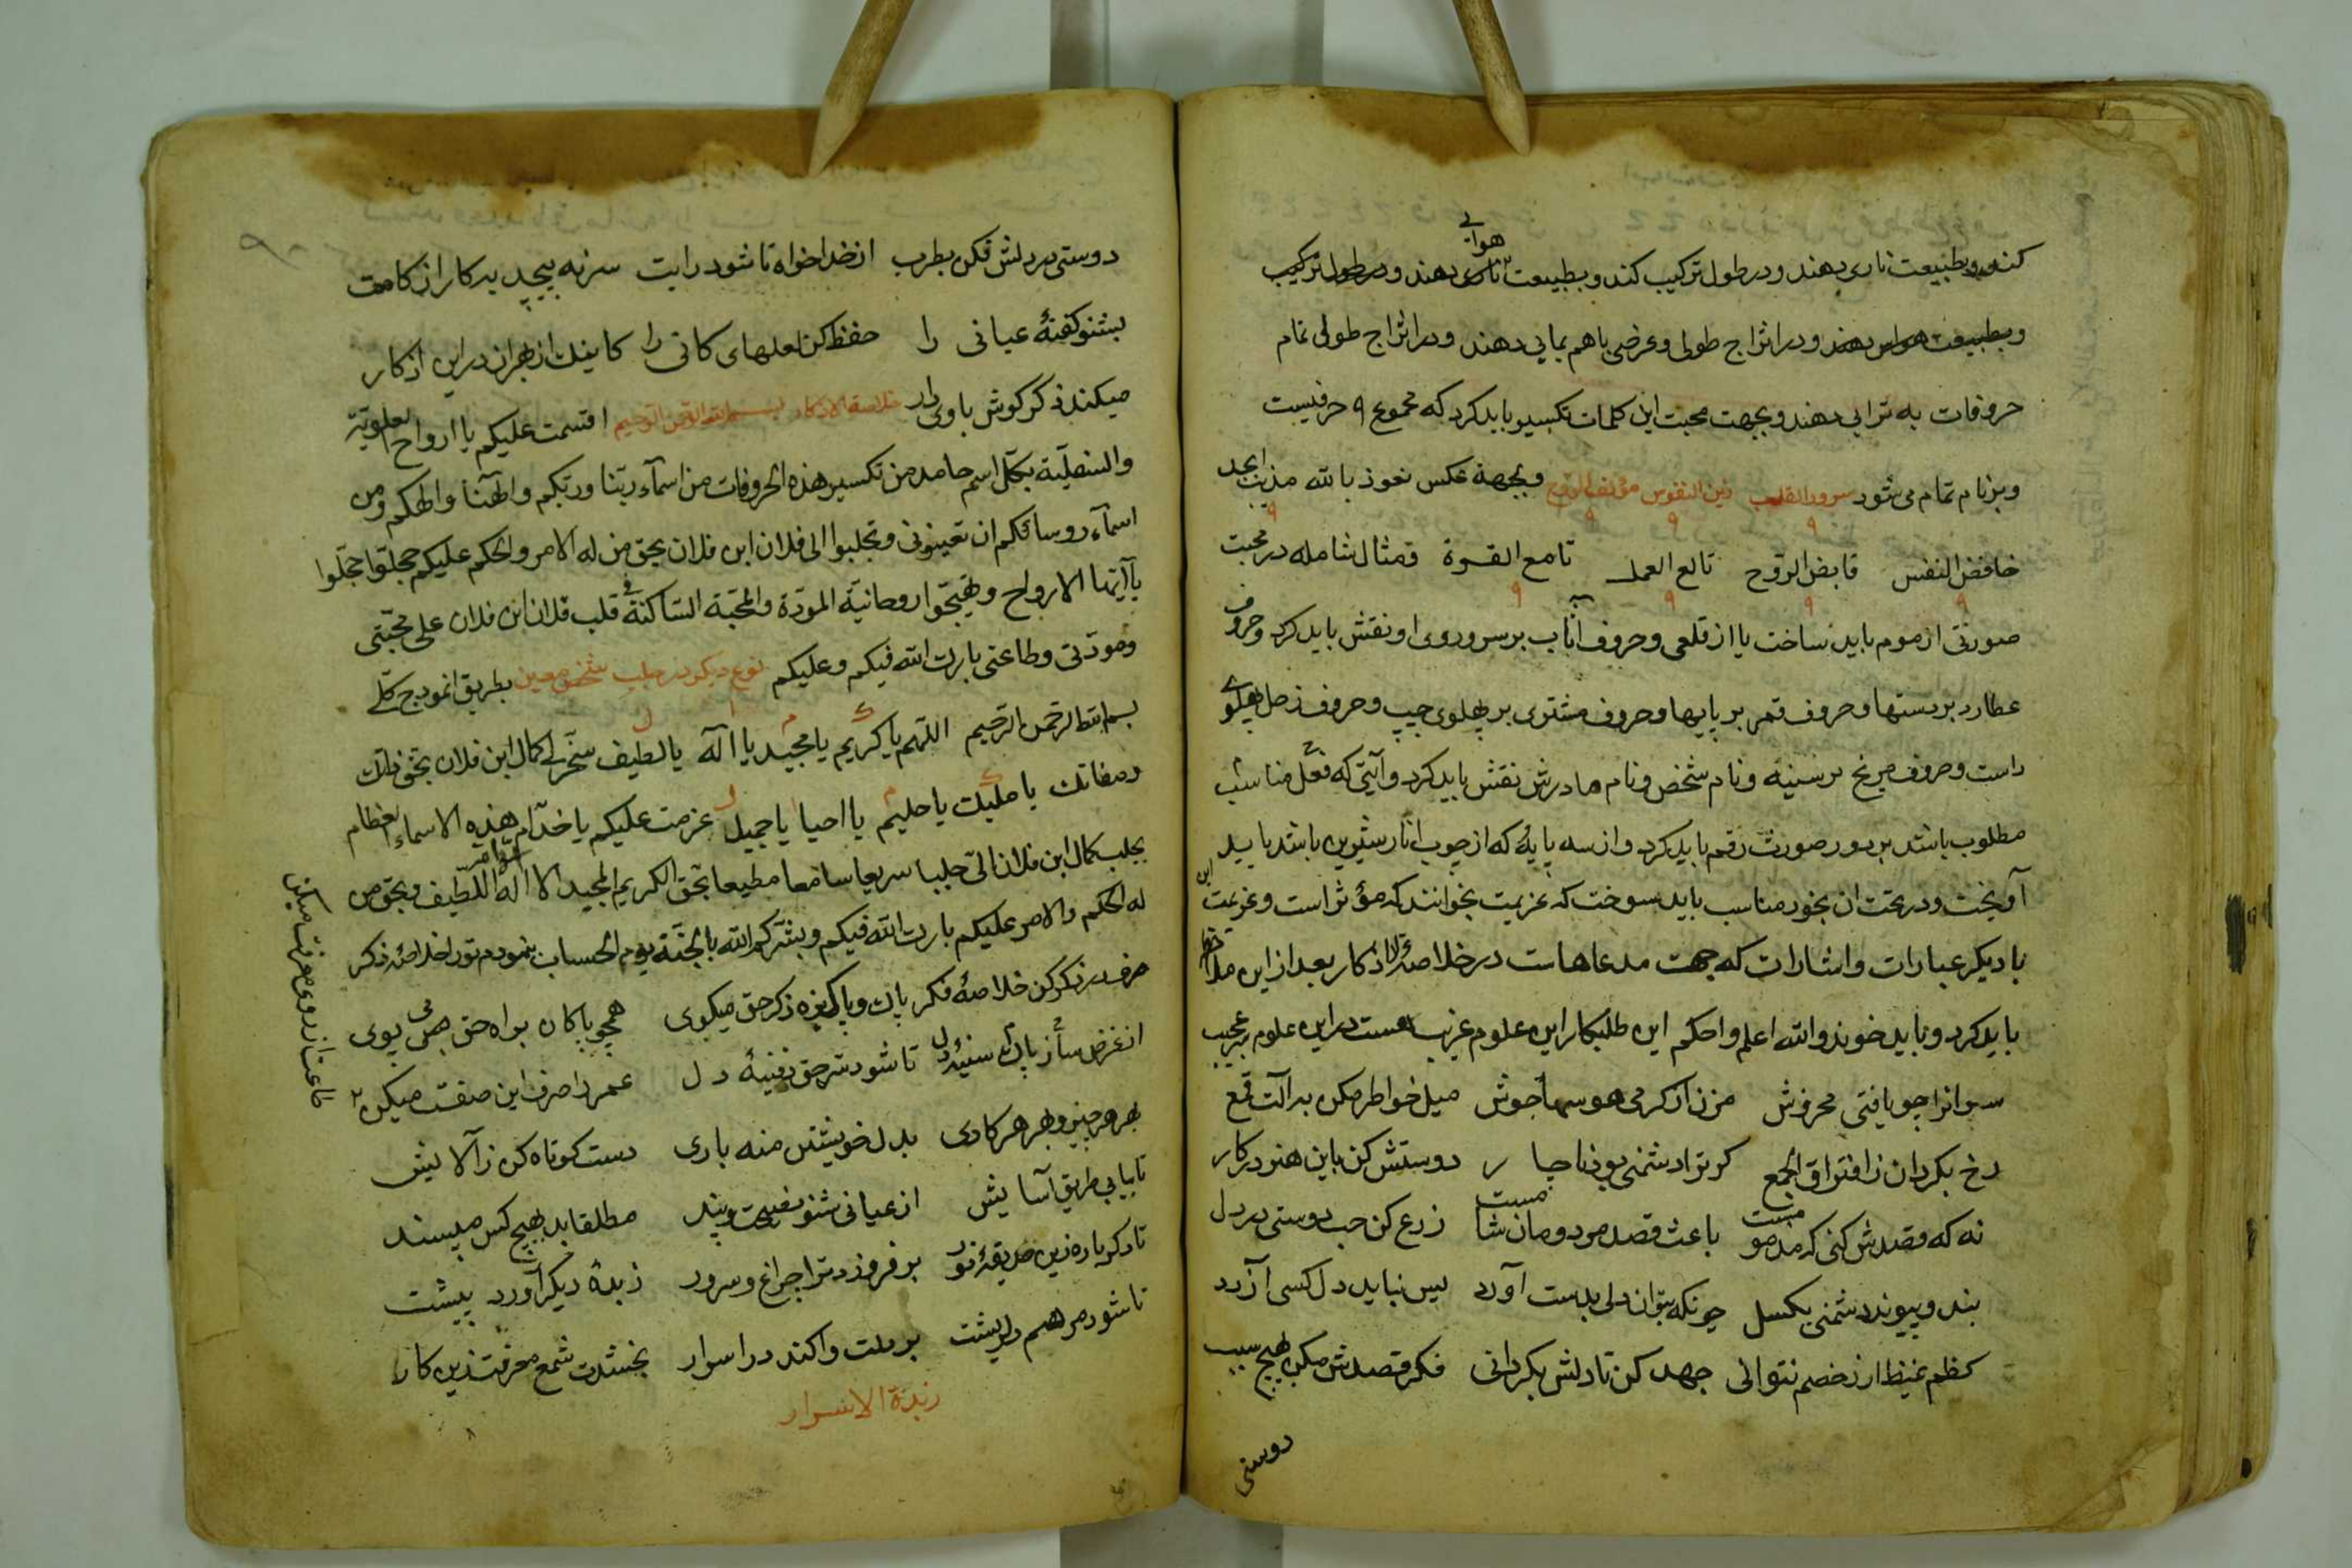 کند و بطبیعت ناری دهند و در طول ترکیب کند و بطبیعت هوائی دهند و در طول ترکیب
و بطبیعت هوایی دهند و در امتزاج طولی و عرضی باهم بمایی دهند و در امتزاج طولی تمام
حروفات به ترابی دهند و بجهت محبت این کلمات تکسیر باید کرد که مجموع ۹ حرفیست
و برنام تمام می شود سرور القلب زین النفوس مؤلف الروح و بجهة عکس نعوذ بالله مذیب الجد
۹ ۹ ۹ ۹
خافض النفس قابض الروح تالع العمل تامع القسوة و مثال شامله در محبت
۹ ۹ ۹ ۹
صورتی از موم باید ساخت یا از قلعی و حروف آفتاب بر سر و روی او نقش باید کرد و حروف
عطارد بر دستها و حروف قمر بر پایها و حروف مشتری بر پهلوی چپ و حروف زحل پهلوی
راست و حروف مریخ بر سینه و نام شخص و نام مادرش نقش باید کرد و آیتی که فعل مناسب
مطلوب باشد بر دور صورت رقم باید کرد و از سه پایهٔ که از چوب انار شیرین باشد باید
آویخت و در تحت ان بخور مناسب باید سوخت که عزیمت بخوانند که مؤثر است و عزیمت این
با دیگر عبارات و اشارات که جهت مدعاهاست در خلاصة الاذکار بعد از این ملاحظه
باید کرد و باید خوند والله اعلم و احکم این طلبکار این علوم غریب هست در این علوم سر عجیب
سر انرا چو یافتی مخروش مزن از کرمی هوسها جوش میل خواطر مکن به آلت قمع
رخ بکردان ز افتراق الجمع کر ترا دشمنی بود ناچار دوستش کن باین هنر در کار
نه که قصدش کنی که مذمومست باعث قصد مردومان شامست زرع کن حب دوستی در دل
بند و پیوند دشمنی بکسل چونکه بتوان دلی بدست آورد پس نباید دل کسی آزرد
کظم غیظ ار ز خصم نتوانی جهد کن تا دلش بکردانی فکر قصدش مکن بهیچ سبب
دوستی
دوستی در دلش فکن بطرب از خدا خواه تا شود رایت سر نه پیچد بد کار از کامت
بشنو کفتهٔ عیانی را حفظ کن لعلهای کانی را کاینک از بهر ان در این اذکار
میکند ذکر کوش باوی دار خلاصة الاذکار بسم الله الرحمن الرحیم اقسمت علیکم یا ارواح العلویة
والسفلیة بکل اسم حامد من تکسیر هذه الحروفات من اسمآء ربنا و ربکم و الهنا و الهکم و من
اسمآء روسائکم ان تعینونی و تجلبوا الی فلان ابن فلان بحق من له الامر والحکم علیکم عجلوا عجلوا
یآ ایتها الارواح و هیجوا روحانیة المودة و المحبة الساکنة فی قلب فلان ابن فلان علی محبتی
و مودتی و طاعتی بارک الله فیکم و علیکم نوع دیکر در جلب شخص معین بطریق انموذج کلی
ک م ا ل
بسم الله الرحمن الرحیم اللهم یا کریم یا مجید یا اله یا لطیف سخر لی کمال ابن فلان بحق ذاتک
وصفاتک یا ملیک یا حلیم یا احیا یا جمیل عزمت علیکم یا خدام هذه الاسماء العظام
بجلب کمال ابن فلان الی جلبا سریعا سامعا مطیعا بحق الکریم المجید الا اله اللطیف و بحق من
له الحکم والامر علیکم بارک الله فیکم و بشرکم الله بالجنة یوم الحساب بنمودم تورا خلاصهٔ ذکر
صرف در ذکر کن خلاصهٔ فکر پاک و پاکیزه ذکر حق میکوی همچو پاکان براه حق می پوی
از غرض ساز پاک سینهٔ دل تا شود سر حق دفینهٔ دل عمر را صرف این صفت میکن
طاعت از روی معرفت میکن
بهر هر چیز و بهر هر کاری بدل خویشتن منه باری دست کوتاه کن ز آلایش
تا بیابی طریق آسایش از عیانی شنو نصیحت و پند مطلقا بد بهیچ کس مپسند
تا دکر باره زین حدیقهٔ نور بر فروزد ترا چراغ و سرور زبدهٔ دیکر آورد پیشت
تا شود مرهم دل ریشت بر دلت وا کند در اسرار بخشدت شمع معرفت زین کار
زبدة الاسرار